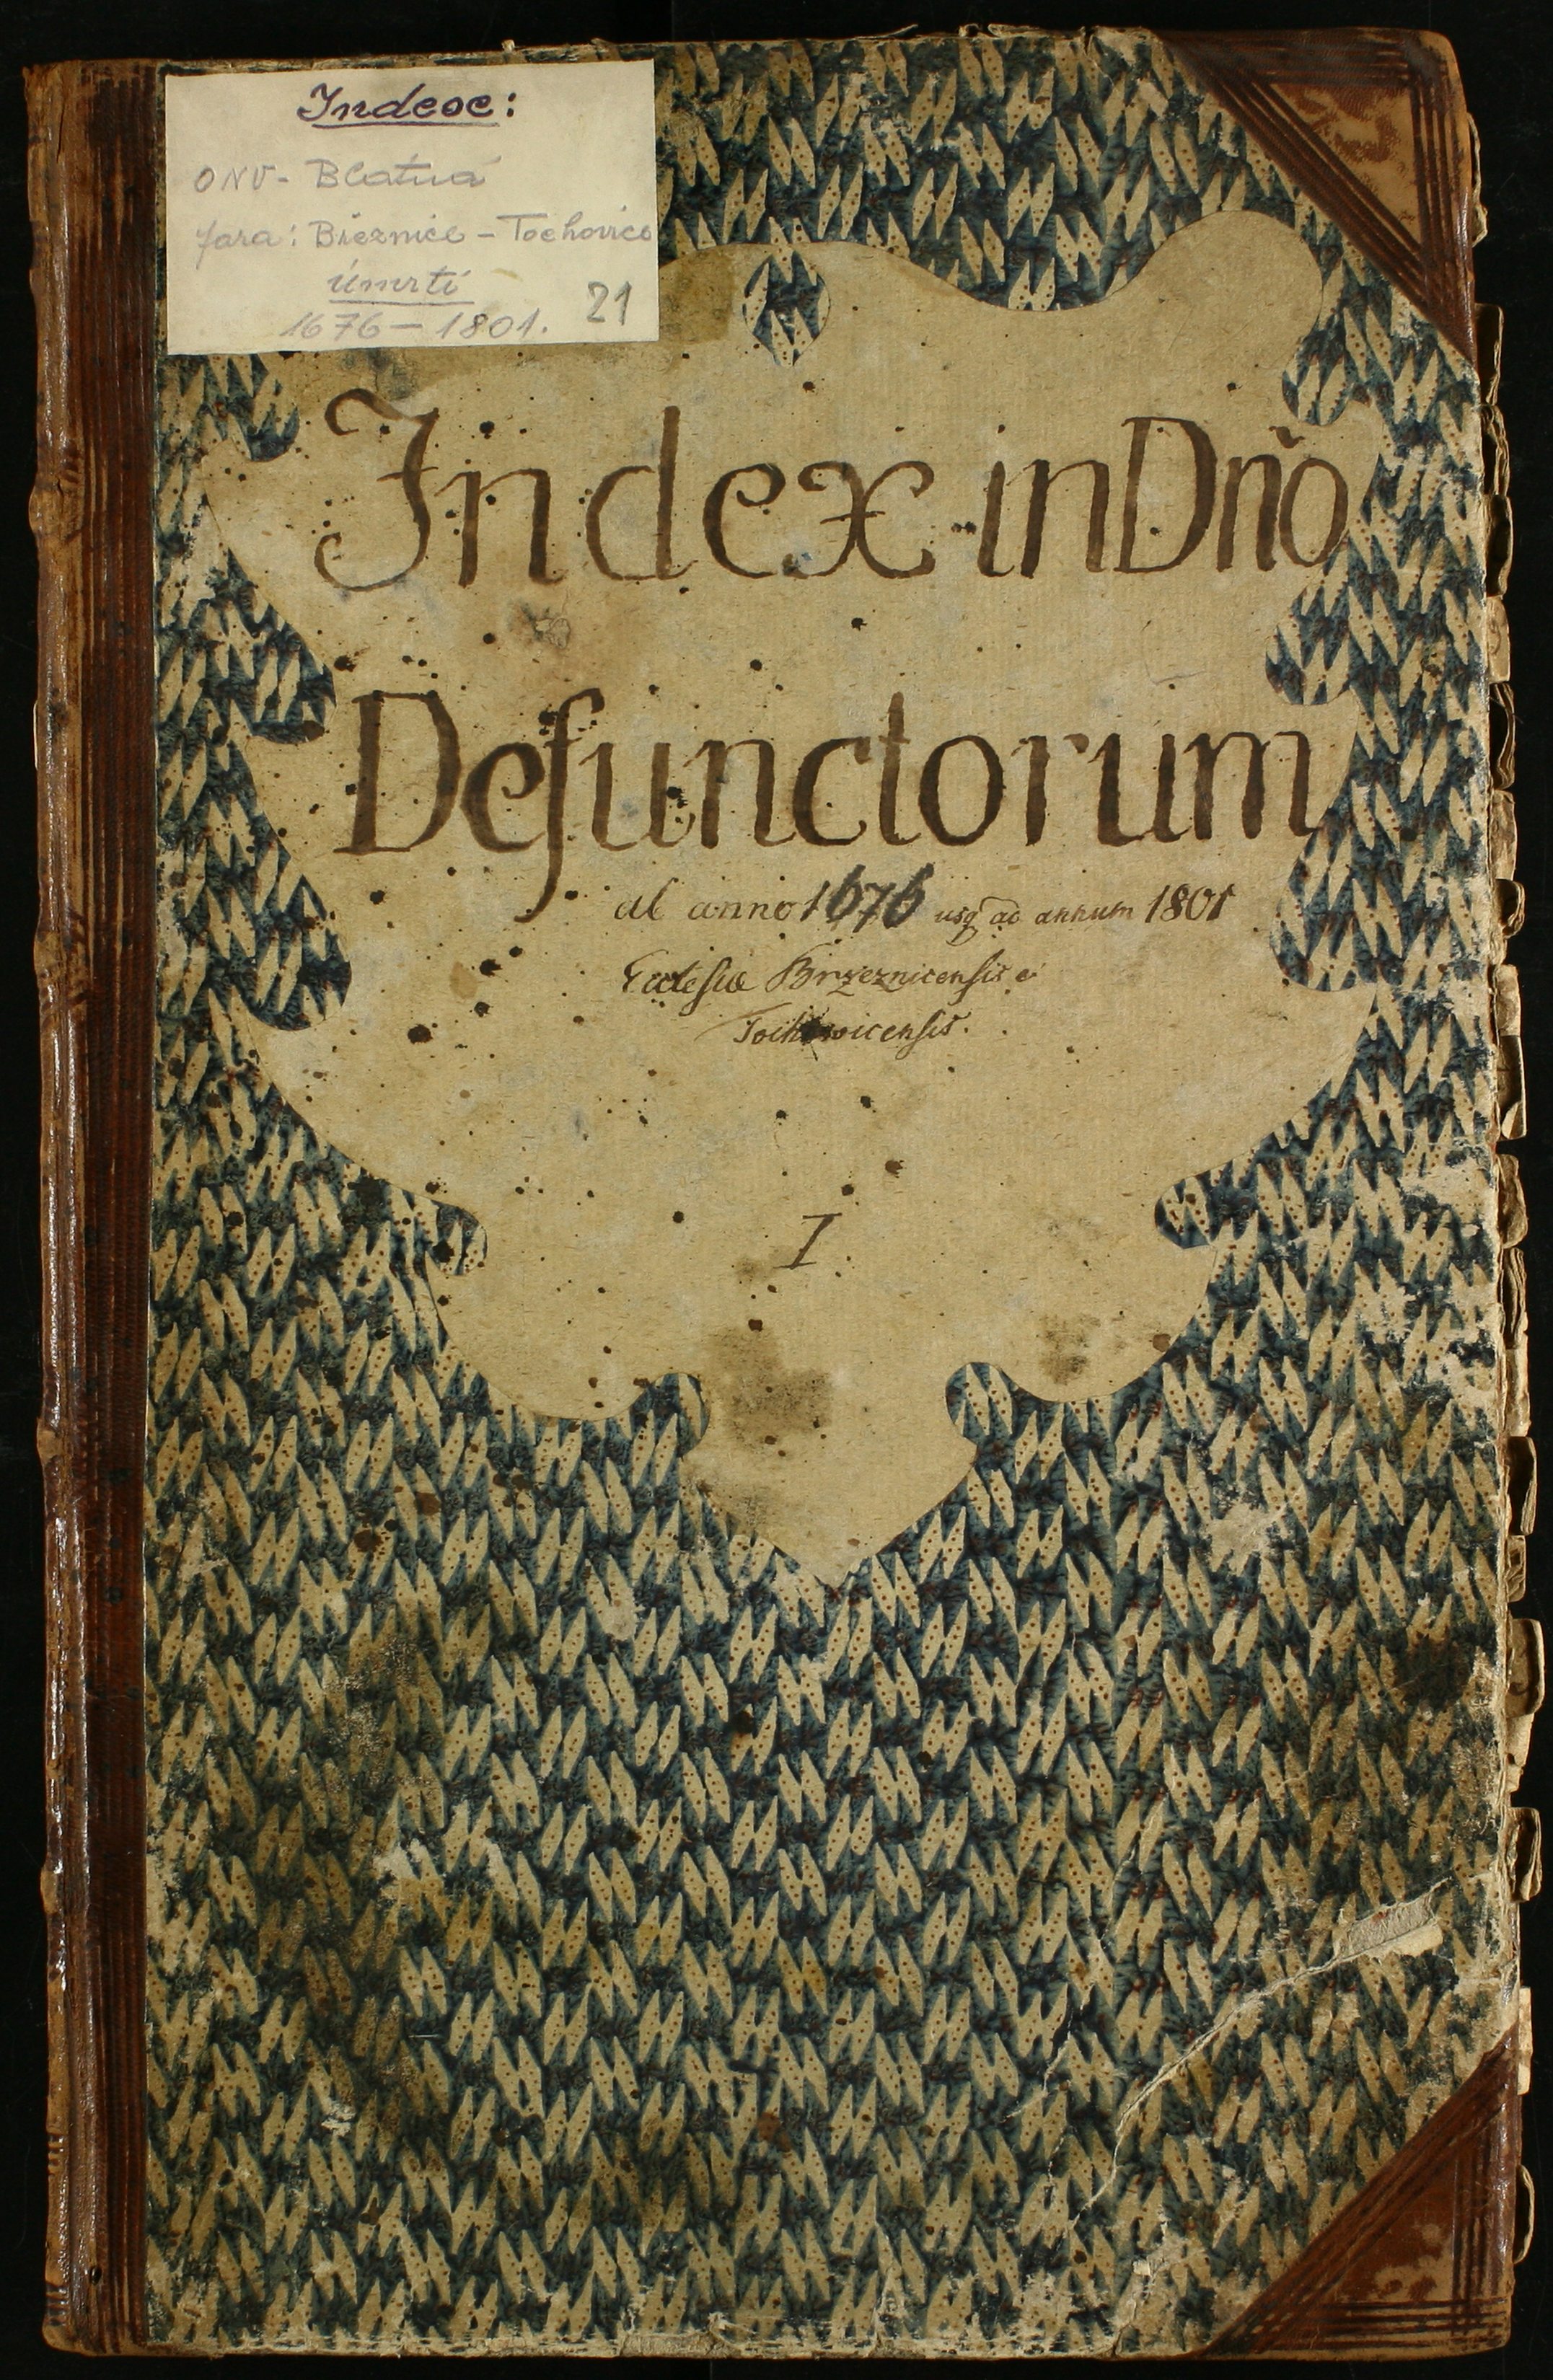 Index:
ONV - Blatná
fara: Březnice - Tochovice
úmrtí
1676 - 1801. 21
Index in Dño
Defunctorum
ab anno 1676 usq ad annum 1801
Ecclesiæ Brzeznicensis e
Tochowicensis.
I.